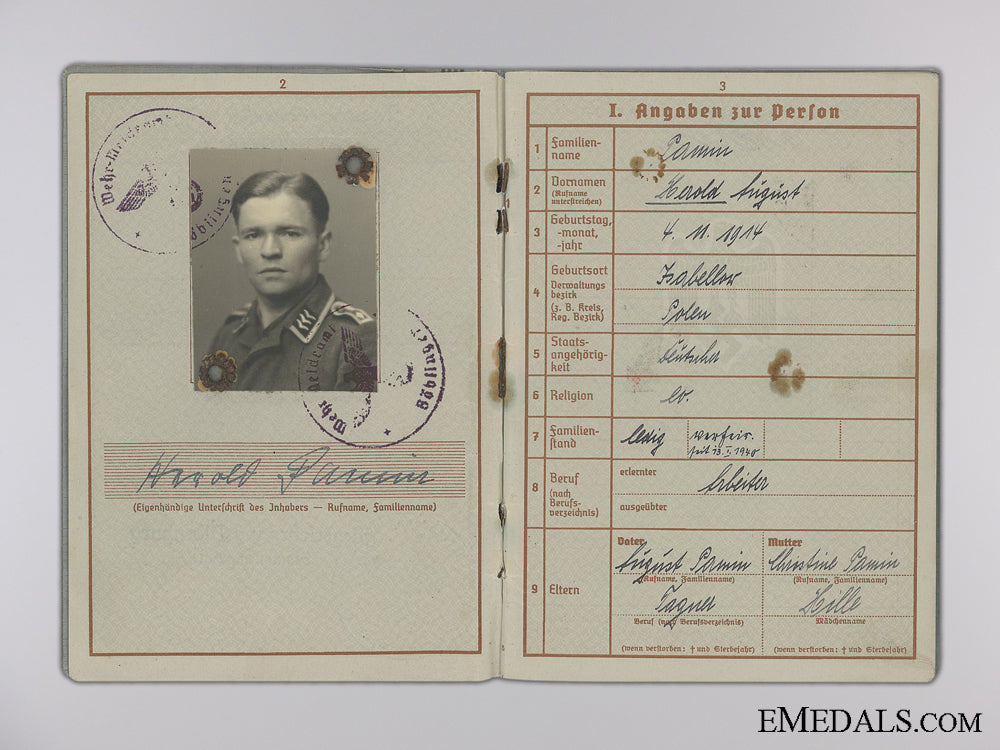 2
Wehr-Meldeamt
Böblingen
Wehr Meldeamt
Böblingen
Herold Pamin
(Eigenhändige Unterschrift des Inhabers — Rufname, Familienname)
3
I. Angaben zur Person
1 Familien-
name
Pamin
2 Vornamen
(Rufname
unterstreichen)
Herold August
3 Geburtstag,
-monat,
-jahr
4. 11. 1914
4 Geburtsort
Verwaltungs
bezirk
(z. B. Kreis,
Reg. Bezirk)
Isabellow
Polen
5 Staats-
angehörig-
keit
Deutscher
6 Religion
ev.
7 Familien-
stand
ledig
verheir.
seit 13. I. 1940
8 Beruf
(nach
Berufs-
verzeichnis)
erlernter
Arbeiter
ausgeübter
9 Eltern
Vater
August Pamin
(Rufname, Familienname)
Beruf (nach Berufsverzeichnis)
(wenn verstorben: † und Sterbejahr)
Mutter
Christine Pamin
(Rufname, Familienname)
Hille
Mädchenname
(wenn verstorben: † und Sterbejahr)
EMEDALS.COM